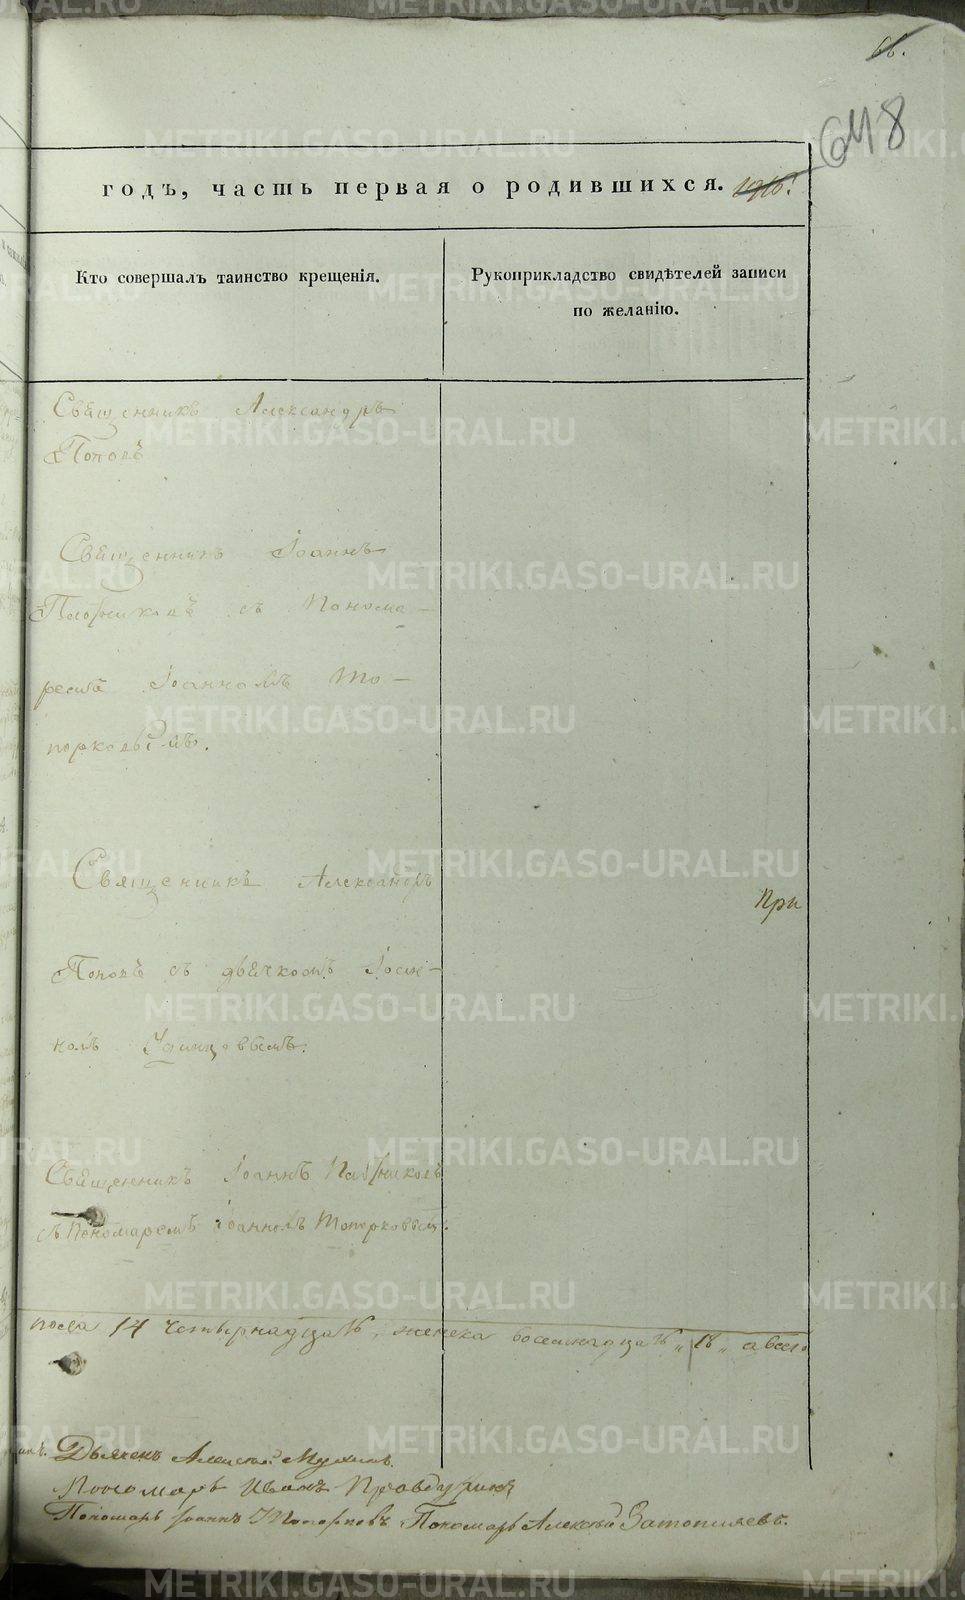 66.
648
годъ, часть первая о родившихся. 1916!
Кто совершалъ таинство крещенія.
Рукоприкладство свидѣтелей записи
по желанію.
Священникъ Александръ
Поповъ
Священникъ Іоаннъ
съ Понома-
ремъ Іоанномъ То-
порковымъ.
Священникъ Александръ
При
Поповъ съ дьячкомъ Іоан-
номъ Удинцовымъ.
Священникъ Іоаннъ
съ Пономаремъ Іоанномъ Топорковымъ.
пола 14 четырнадцать, женска восемнадцать „18„ а всего
Дьячекъ Алексѣй
Пономарь Иванъ Правдухинъ
Пономарь Іоаннъ Топорковъ Пономарь Алексѣй
METRIKI.GASO-URAL.RU